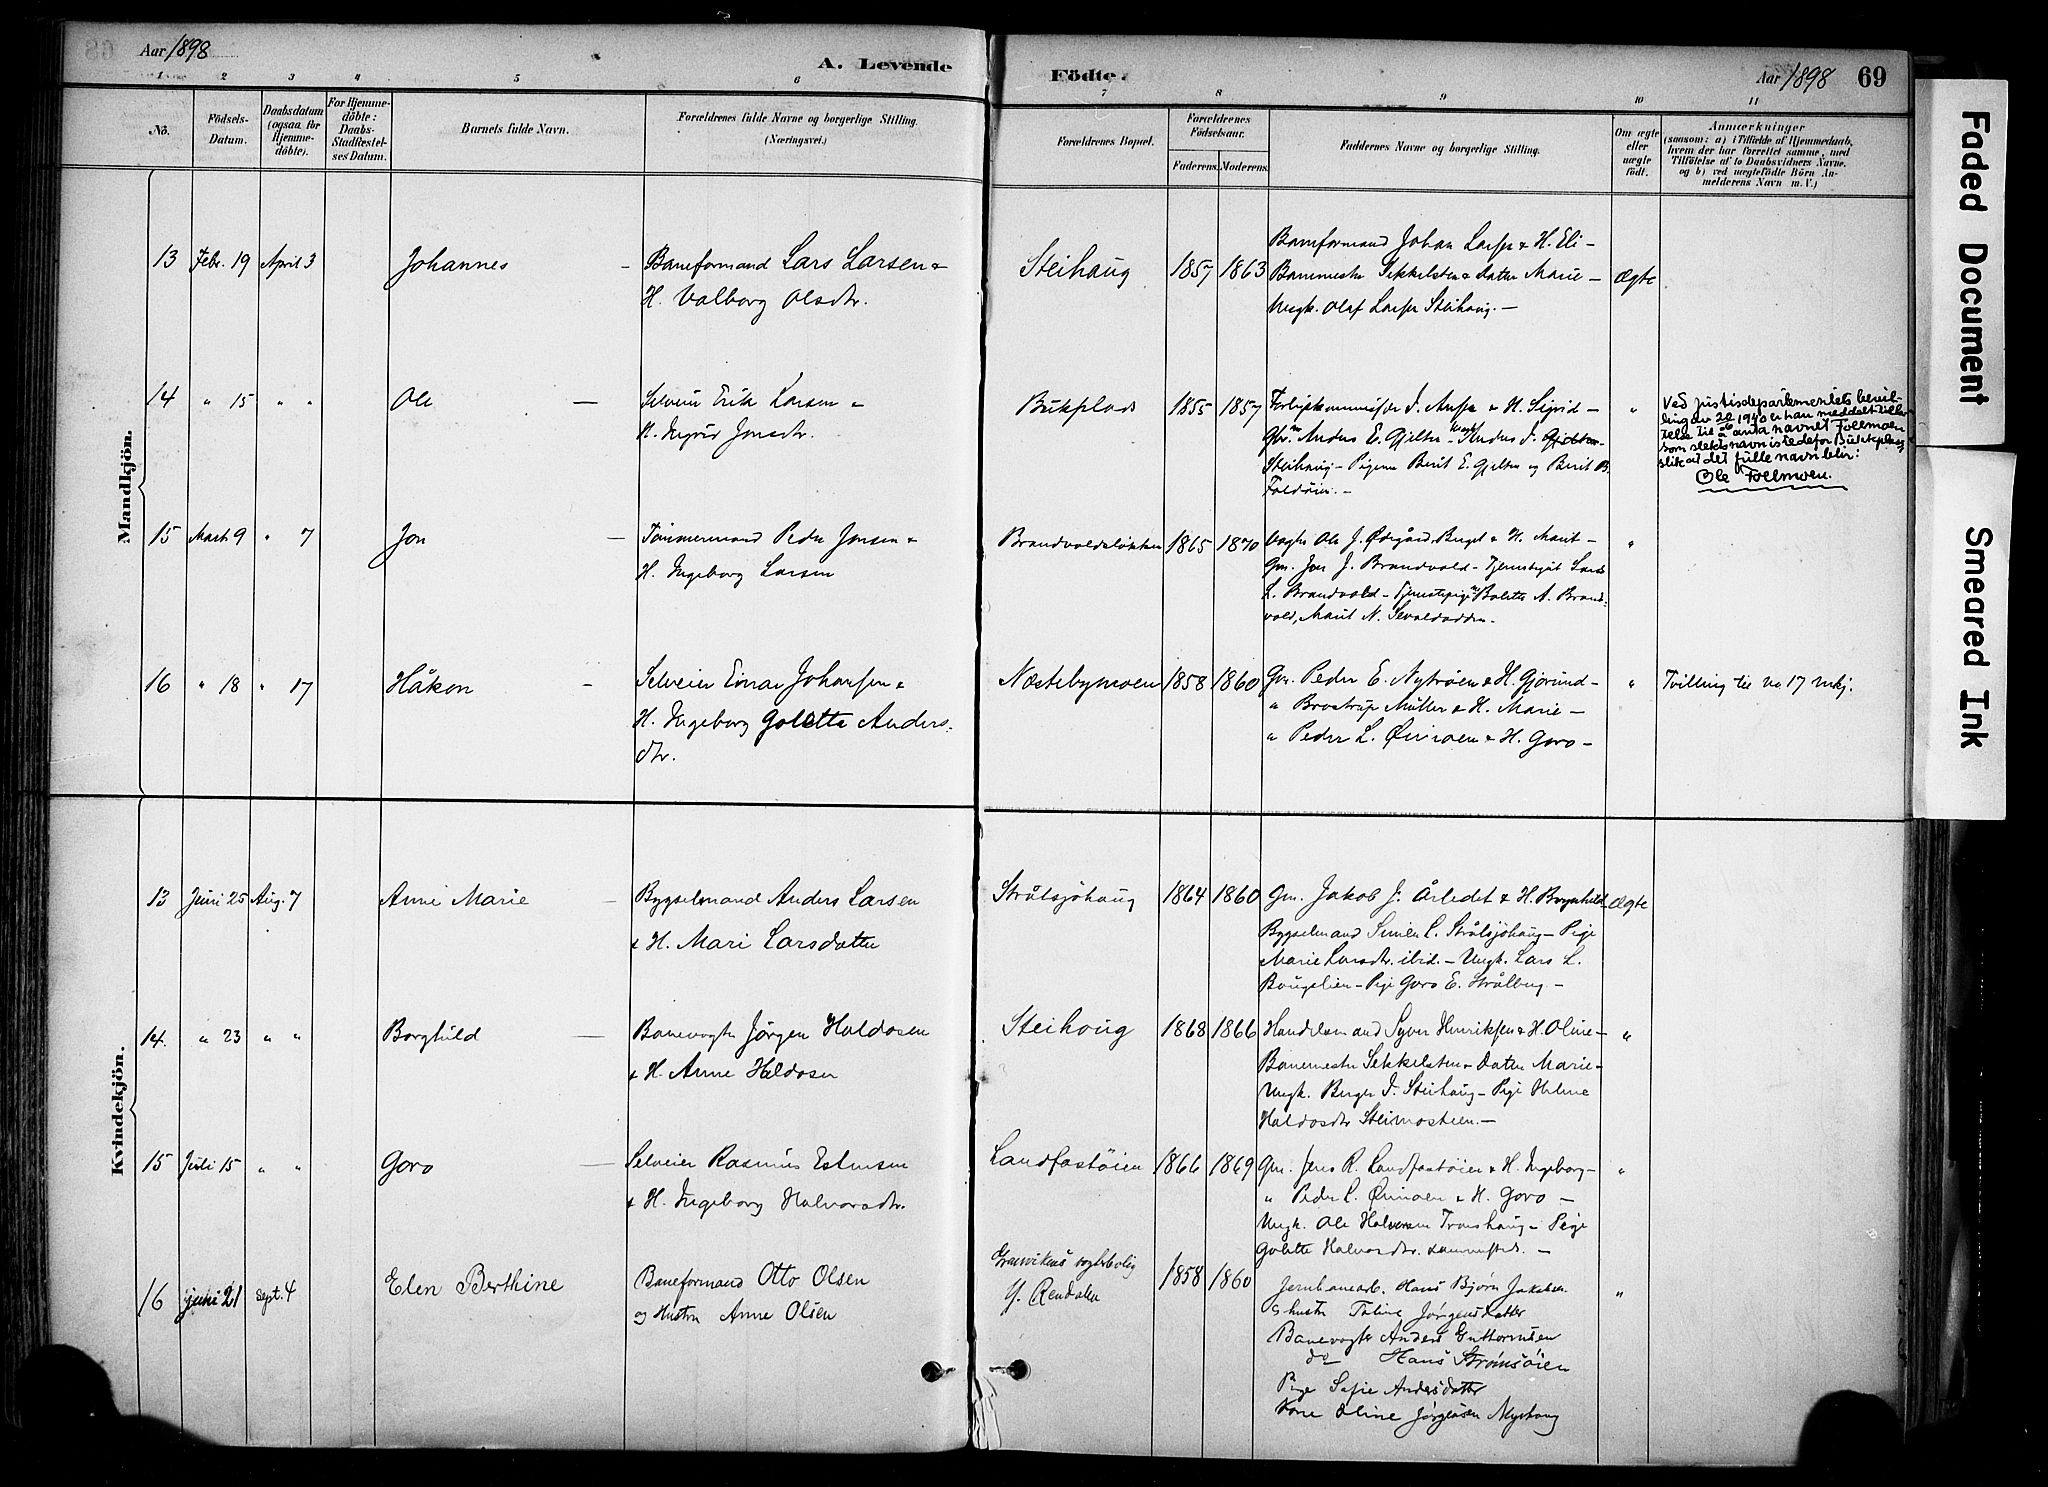 Aar 1898
A. Levende
Födte.
Aar 1898 69
1 2 3 4 5 6 7 8 9 10 11
No.
Födsels-
Datum.
Daabsdatum
(ogsaa for
Hjemme-
döbte).
For Hjemme-
döbte:
Daabs-
Stadfæstel-
ses Datum.
Barnets fulde Navn.
Forældrenes fulde Navne og borgerlige Stilling.
(Næringsvei.)
Forældrenes Bopæl.
Forældrenes
Födselsaar.
Faderens. Moderens.
Faddernes Navne og borgerlige Stilling.
Om ægte
eller
uægte
født.
Anmærkninger
(saasom: a) i Tilfælde af Hjemmedaab,
hvem der har forrettet samme, med
Tilföielse af to Daabsvidners Navne,
og b) ved uægtefödte Börn An-
melderens Navn m. V.)
Mandkjön.
13 Febr. 19 April 3 Johannes
Baneformand Lars Larsen &
H. Valborg Olsdtr.
Steihaug 1857 1863
Baneformand Johan Larss & H. Eli -
Banemester Sekkelsten & Datter Marie -
Ungk. Olaf Larss Steihaug. -
Ægte
14 " 15 " " Ole
Selveier Erik Larsen &
H. Ingrid Jonsdtr.
Bukplads 1855 1857
& H. Sigrid -
Anders E. Gjelten Anders J.
Steihaug - Pigerne Berit E. Gjelten og Berit B.
"
Ved justisdepartementets bevil-
ling av 20/6 1940 er han meddelt tilla-
telse til å anta navnet Follmoen
som slektsnavn istedefor Bukkplass,
slik at det fulle navn blir:
Ole Follmoen.
15 Marts 9 " 7 Jon
Tømmermand Peder Jonsen &
H. Ingeborg Larsen
Brandvoldsløkken 1865 1870
Ole J. Ødegård, & H. Marit -
Gm. Jon J. Brandvold - Lars
L. Brandvold - Tjenestepige Bolette A. Brand-
vold, Marit N.
"
16 " 18 " 17 Håkon
Selveier Einar Johansen &
H. Ingeborg Golette Anders-
dtr.
Næstebymoen 1858 1860
Gm. Peder E. Nytrøen & H. Gjørund -
" Brostrup Müller & H. Marie -
" Peder L. Øvimoen & H. Goro -
"
Tvilling til no 17 mkj.
Kvindekjön.
13 Juni 25 Aug. 7 Anne Marie
Bygselmand Anders Larsen
& H. Mari Larsdatter
Stråtsjøhaug 1864 1860
Gm. Jakob J. Årledet & H. Borghild -
Bygselmand Simen L. Stråtsjøhaug - Pige
Marie Larsdtr. ibid. - Ungk. Lars L.
Pige Goro E.
Ægte
14. " 23 " " Borghild
Banevogter Jørgen Haldosen
& H. Anne Haldosen
Steihaug 1868 1866
Handelsmand Syver Henriksen & H. Oline -
Banemester Sekkelsten & Datter Marie -
Ungk. Birger J. Steihaug - Pige Helene
Haldosdtr Steimosteien. -
"
15 Juli 15 " " Goro
Selveier Rasmus Estensen
& H. Ingeborg Halvorsdtr.
Landfastøien 1866 1869
Gm. Jens R. Landfastøien & H. Ingeborg -
" Peder L. Øvimoen & H. Goro -
Ungk. Ole Halvorsen Tronshaug - Pige
Golette Halvorsdtr. sammesteds. -
"
16 juni 21 Sept. 4 Elen Berthine
Baneformand Otto Olsen
og Hustru Anne Olsen
Y. Rendalen
1858 1860
Jernbanearb. Hans Bjørn Jakobsen
& hustru Taline Jørgensdatter
Banevogter Anders Guttormsen
do Hans Strømsøien
Pige Sofie Andersdatter
Kone Oline Jørgensen Myrhaug
"
Faded Document
Smeared Ink